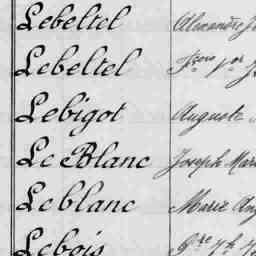 Lebeltel Alexandre
Lebeltel Fçois
Lebigot Auguste
Le Blanc Joseph Marie
Leblanc Marie Ang
Lebois